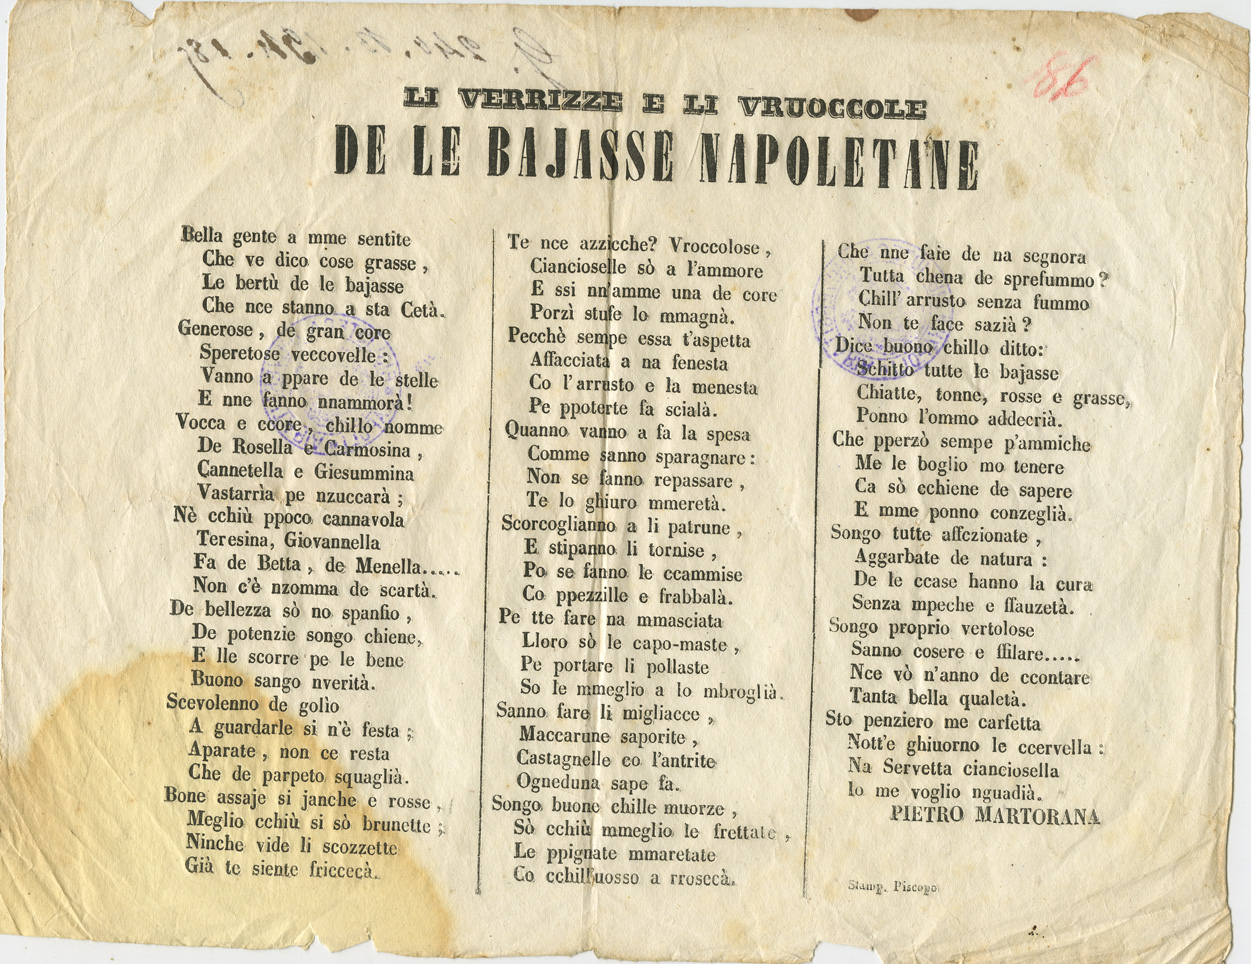 86
LI VERRIZZE E LI VRUOCCOLE
DE LE BAJASSE NAPOLETANE
Bella gente a mme sentite
Che ve dico cose grasse,
Le bertù de le bajasse
Che nce stanno a sta Cetà.
Generose, de gran core
Speretose veccovelle:
Vanno a ppare de le stelle
E nne fanno nnammorà!
Vocca e ccore, chillo nomme
De Rosella e Carmosina,
Cannetella e Giesummina
Vastarrìa pe nzuccarà;
Nè cchiù ppoco cannavola
Teresina, Giovannella
Fa de Betta, de Menella.....
Non c'è nzomma de scartà.
De bellezza sò no spanfio,
De potenzie songo chiene,
E lle scorre pe le bene
Buono sango nverità.
Scevolenno de golìo
A guardarle si n'è festa;
Aparate, non ce resta
Che de parpeto squaglià.
Bone assaje si janche e rosse,
Meglio cchiù si sò brunette;
Ninche vide li scozzette
Già te siente friccecà.
Te nce azzicche? Vroccolose,
Ciancioselle sò a l'ammore
E ssi nn'amme una de core
Porzì stufe lo mmagnà.
Pecchè sempe essa t'aspetta
Affacciata a na fenesta
Co l'arrusto e la menesta
Pe ppoterte fa scialà.
Quanno vanno a fa la spesa
Comme sanno sparagnare:
Non se fanno repassare,
Te lo ghiuro mmeretà.
Scorcoglianno a li patrune,
E stipanno li tornise,
Po se fanno le ccammise
Co ppezzille e frabbalà.
Pe tte fare na mmasciata
Lloro sò le capo-maste,
Pe portare li pollaste
So le mmeglio a lo mbroglià.
Sanno fare li migliacce,
Maccarune saporite,
Castagnelle co l'antrite
Ogneduna sape fa.
Songo buone chille muorze,
Sò cchiù mmeglio le frettate,
Le ppignate mmaretate
Co cchill'uosso a rrosecà.
Che nne faie de na segnora
Tutta chena de sprefummo?
Chill'arrusto senza fummo
Non te face sazià?
Dice buono chillo ditto:
Schitto tutte le bajasse
Chiatte, tonne, rosse e grasse,
Ponno l'ommo addecrià.
Che pperzò sempe p'ammiche
Me le boglio mo tenere
Ca sò cchiene de sapere
E mme ponno conzeglià.
Songo tutte affezionate,
Aggarbate de natura:
De le ccase hanno la cura
Senza mpeche e ffauzetà.
Songo proprio vertolose
Sanno cosere e ffilare.....
Nce vò n'anno de ccontare
Tanta bella qualetà.
Sto penziero me carfetta
Nott'e ghiuorno le ccervella:
Na Servetta cianciosella
Io me voglio nguadià.
PIETRO MARTORANA
Stamp. Piscopo